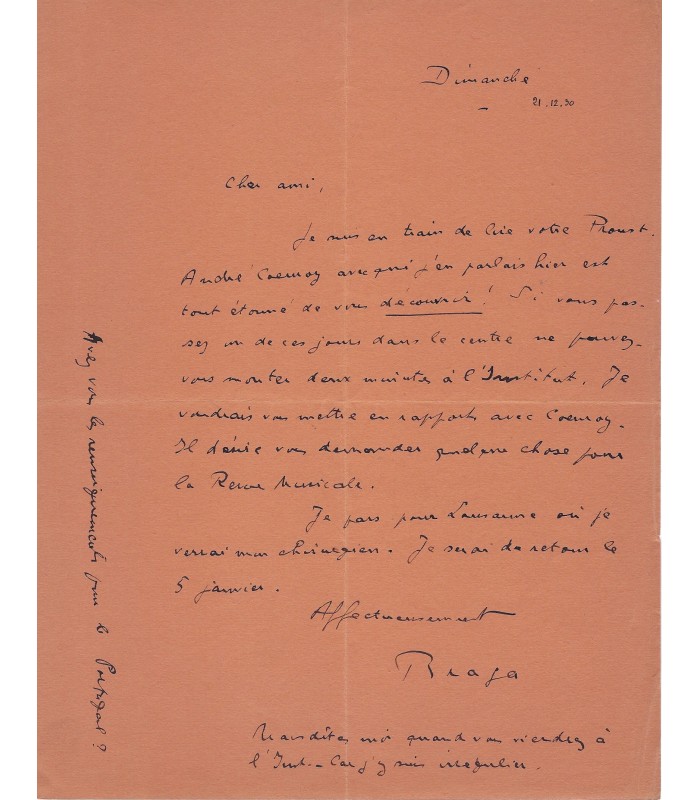 Dimanche
21.12.30
Cher ami,
Je suis en train de lire votre Proust.
André Coeuroy avec qui j'en parlais hier est
tout étonné de vous découvrir ! Si vous pas-
sez un de ces jours dans le centre ne pouvez-
vous monter deux minutes à l'Institut. Je
voudrais vous mettre en rapports avec Coeuroy.
Il désire vous demander quelque chose pour
la Revue Musicale.
Je pars pour Lausanne où je
verrai mon chirurgien. Je serai de retour le
5 janvier.
Affectueusement
Braga
dites moi quand vous viendrez à
l'Inst- Car j'y suis irrégulier.
Avez vous les renseignements pour le Portugal ?